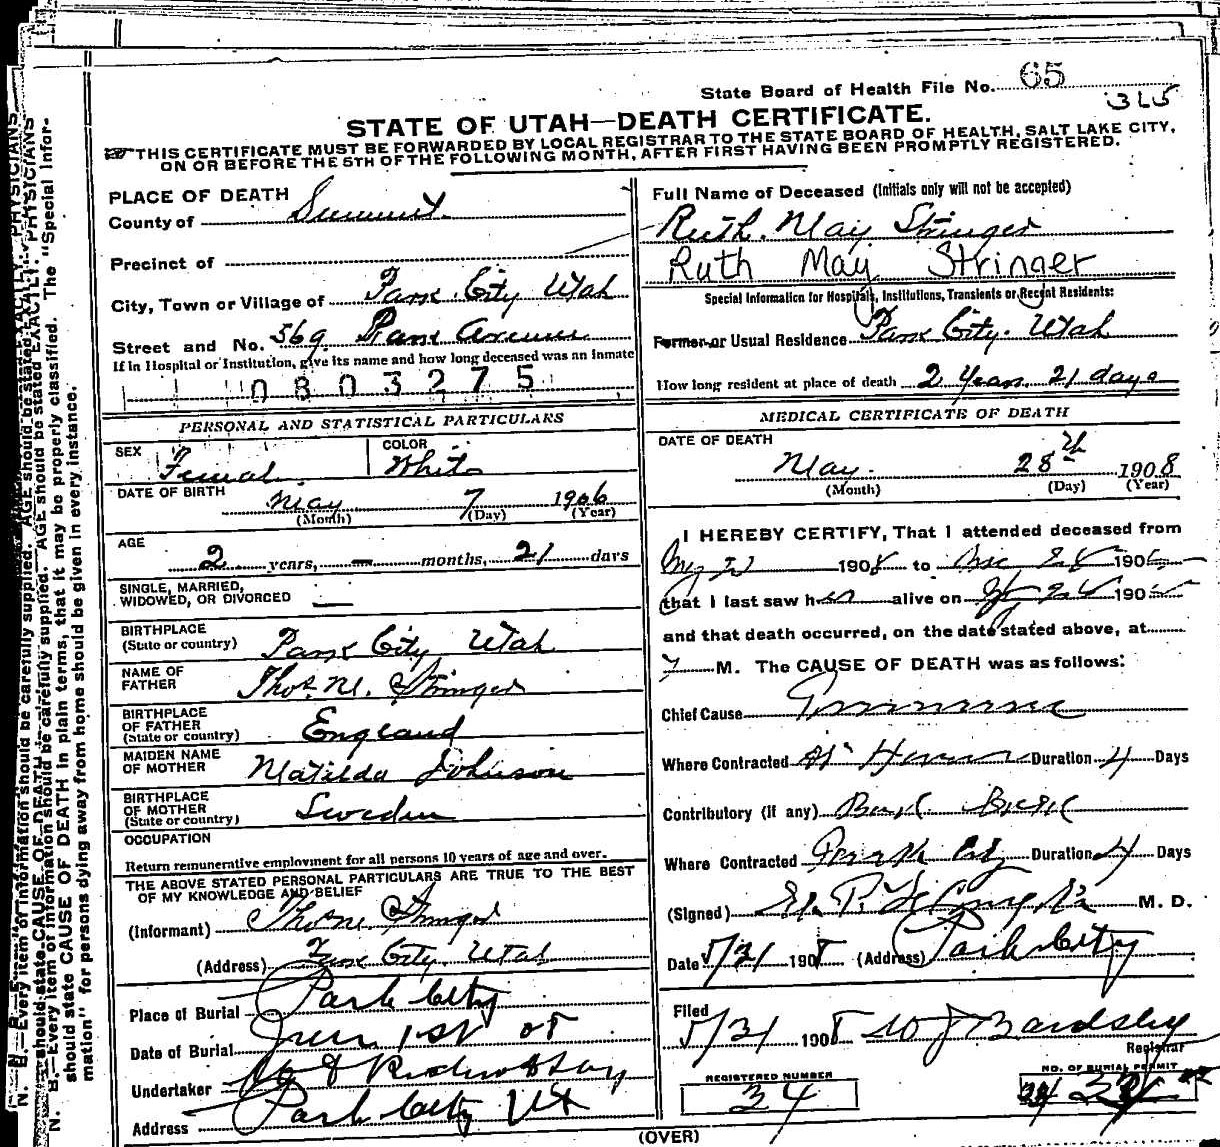 State Board of Health File No. 65
365
STATE OF UTAH—DEATH CERTIFICATE.
THIS CERTIFICATE MUST BE FORWARDED BY LOCAL REGISTRAR TO THE STATE BOARD OF HEALTH, SALT LAKE CITY,
ON OR BEFORE THE 5TH OF THE FOLLOWING MONTH, AFTER FIRST HAVING BEEN PROMPTLY REGISTERED.
PLACE OF DEATH
County of Summit
Precinct of
City, Town or Village of Park City Utah
Street and No. 569 Park Avenue
If in Hospital or Institution, give its name and how long deceased was an inmate
0803275
PERSONAL AND STATISTICAL PARTICULARS
SEX Female COLOR White
DATE OF BIRTH May 7 1906
(Month) (Day) (Year)
AGE 2 years, — months, 21 days
SINGLE, MARRIED,
WIDOWED, OR DIVORCED —
BIRTHPLACE
(State or country) Park City Utah
NAME OF
FATHER Thos. M. Stringer
BIRTHPLACE
OF FATHER
(State or country) England
MAIDEN NAME
OF MOTHER Matilda Johnson
BIRTHPLACE
OF MOTHER
(State or country) Sweden
OCCUPATION
Return remunerative employment for all persons 10 years of age and over.
THE ABOVE STATED PERSONAL PARTICULARS ARE TRUE TO THE BEST
OF MY KNOWLEDGE AND BELIEF
(Informant) Thos M Stringer
(Address) Park City Utah
Place of Burial Park City
Date of Burial June 1st 08
Undertaker
Address Park City Ut
Full Name of Deceased (Initials only will not be accepted)
Ruth May Stringer
Ruth May Stringer
Special Information for Hospitals, Institutions, Transients or Recent Residents:
Former or Usual Residence Park City Utah
How long resident at place of death 2 Years 21 days
MEDICAL CERTIFICATE OF DEATH
DATE OF DEATH
May 28th 1908
(Month) (Day) (Year)
I HEREBY CERTIFY, That I attended deceased from
1908 to 190
that I last saw her alive on 190
and that death occurred, on the date stated above, at
7 M. The CAUSE OF DEATH was as follows:
Chief Cause Pneumonia
Where Contracted At Home Duration 4 Days
Contributory (if any)
Where Contracted Park City Duration 4 Days
(Signed) M. D.
Date 5/31 1908 (Address) Park City
Filed
5/31 1908 W J Bardsley
Registrar
REGISTERED NUMBER
34
NO. OF BURIAL PERMIT
(OVER)
N. B.—Every item of information should be carefully supplied. AGE should be stated EXACTLY. PHYSICIANS
should state CAUSE OF DEATH in plain terms, that it may be properly classified. The "Special Infor-
mation" for persons dying away from home should be given in every instance.